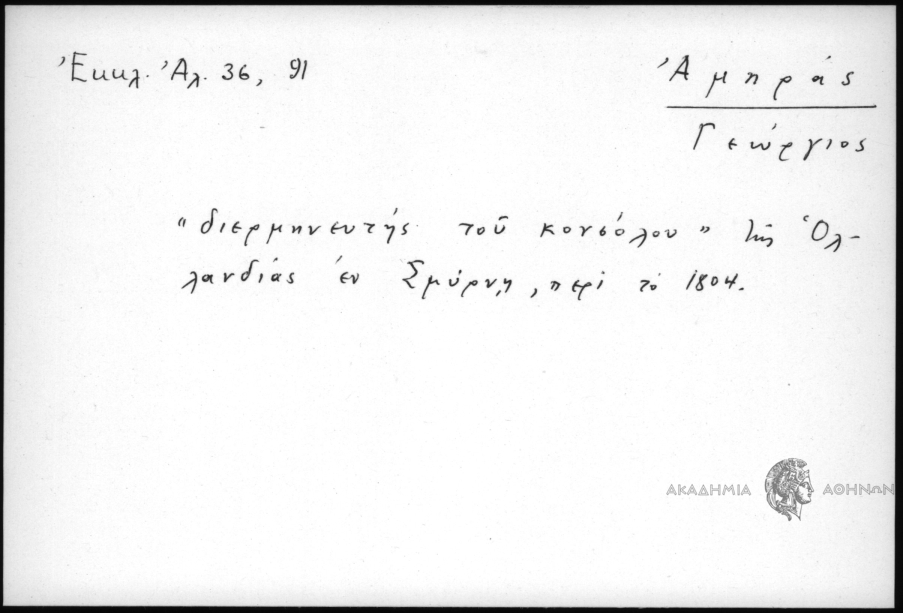 Ἐκκλ. Ἀλ. 36, 91
Ἀμπράς
Γεώργιος
"διερμηνευτής τοῦ κονσόλου" τῆς Ὁλ-
λανδίας ἐν Σμύρνῃ, περὶ τὸ 1804.
ΑΚΑΔΗΜΙΑ ΑΘΗΝΩΝ